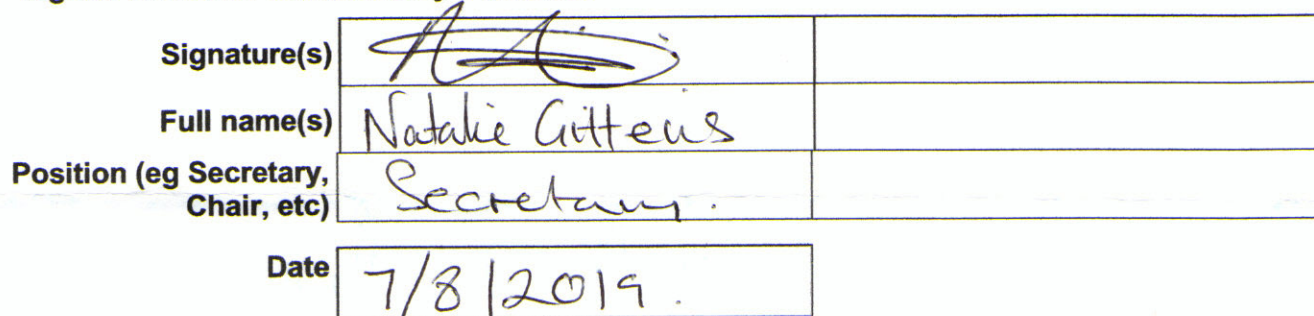 Signature(s)
Full name(s) Natalie Gittens
Position (eg Secretary, Secretary.
Chair, etc)
Date 7/8/2019.